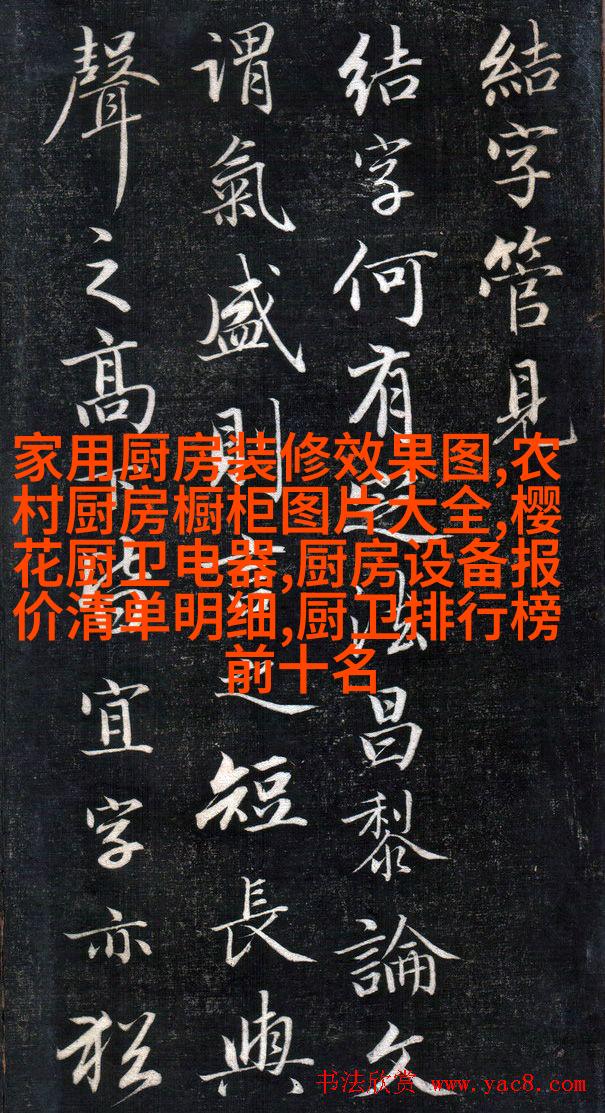 結字管見
结字何有法昌黎論文
謂氣盛則言之短長與
聲之高下皆宜字亦猶
家用厨房装修效果图,农
村厨房橱柜图片大全,樱
花厨卫电器,厨房设备报
价清单明细,厨卫排行榜
前十名
书法欣赏 www.yac8.com